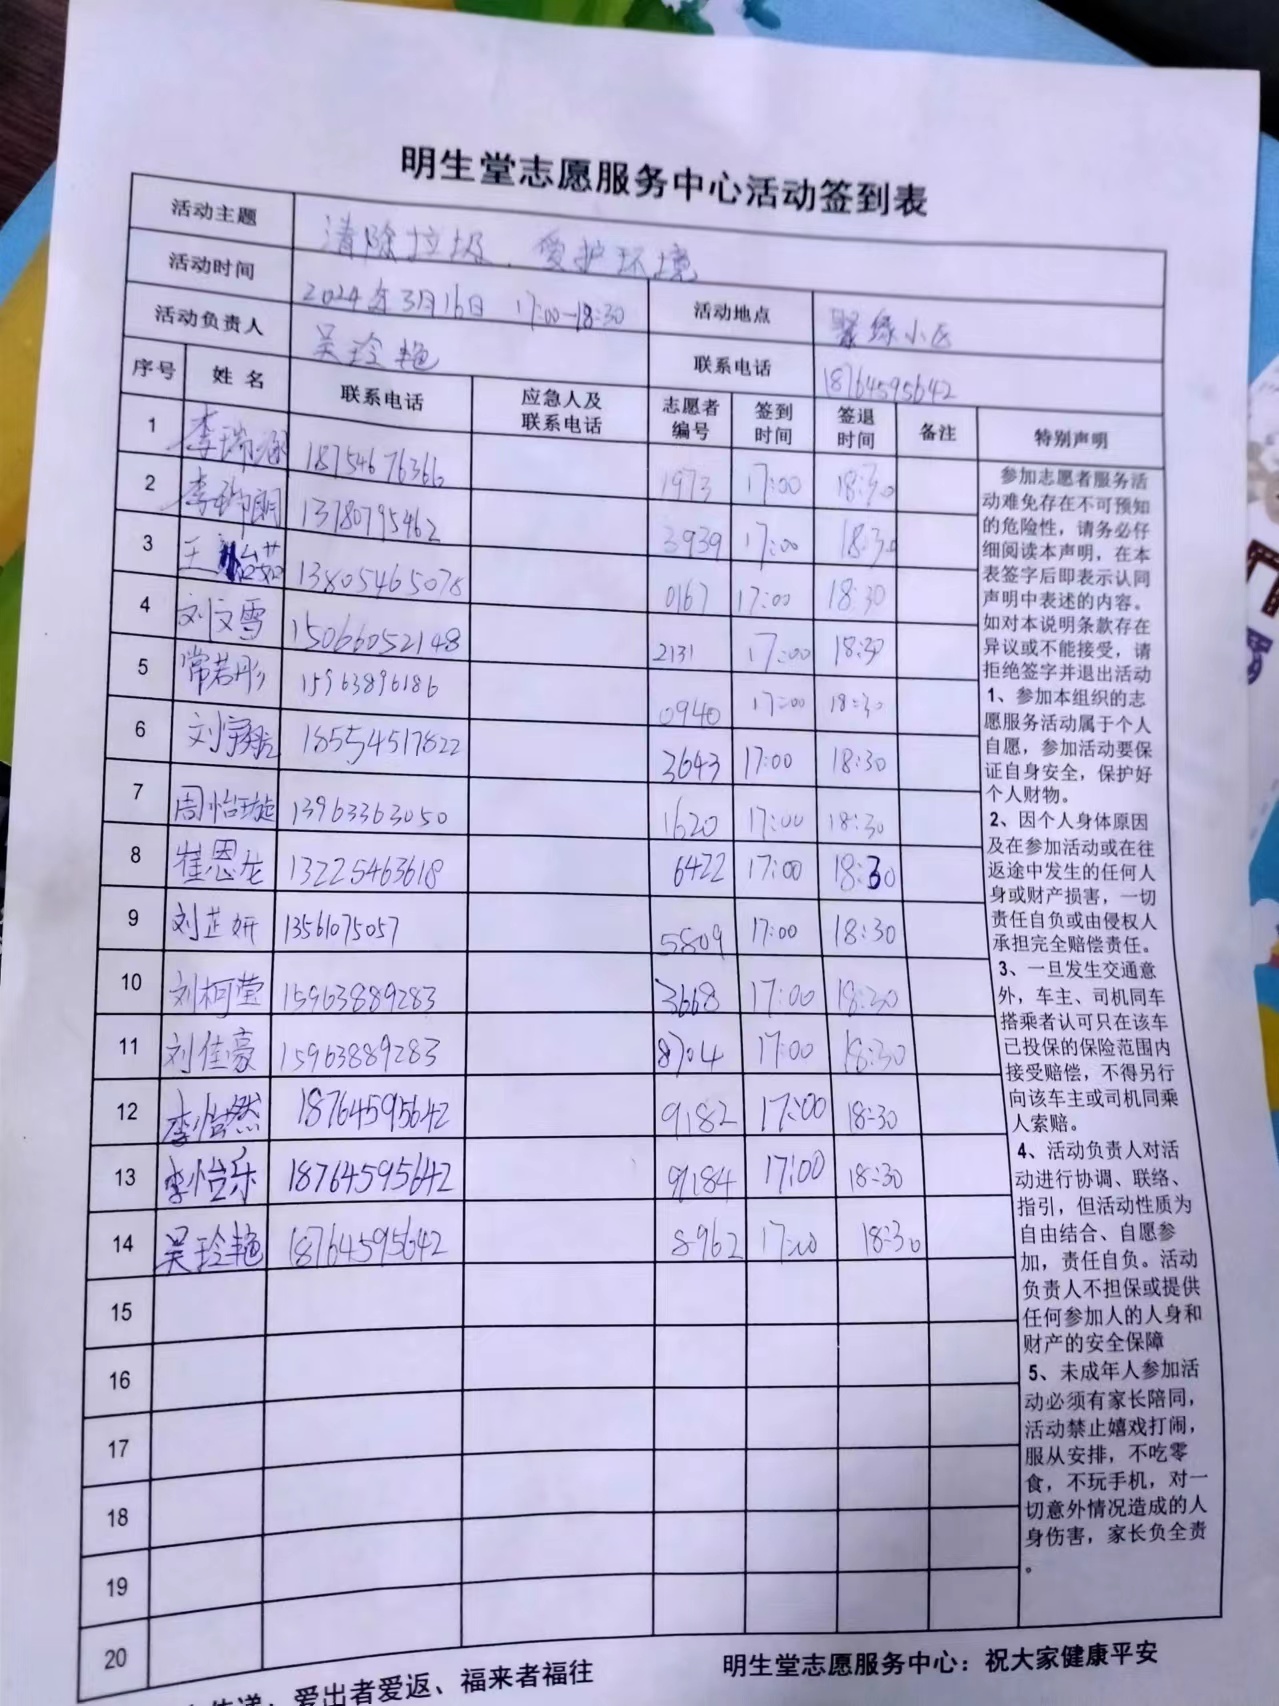 明生堂志愿服务中心活动签到表
活动主题 清除垃圾、爱护环境
活动时间 2024年3月16日 17:00-18:30 活动地点 翠绿小区
活动负责人 吴玲艳 联系电话 18764595642
序号 姓名 联系电话 应急人及联系电话 志愿者编号 签到时间 签退时间 备注 特别声明
1 李瑞涵 18754676366 1973 17:00 18:30
2 李瑞明 13780795462 3939 17:00 18:30
3 王 13805465078 0167 17:00 18:30
4 刘文雪 15066052148 2131 17:00 18:30
5 常若彤 15963896186 0940 17:00 18:30
6 刘宇 18554517822 3643 17:00 18:30
7 周怡璇 13963363050 1620 17:00 18:30
8 崔恩龙 13225463618 6422 17:00 18:30
9 刘芷妍 13561075057 5809 17:00 18:30
10 刘柯莹 15963889283 3668 17:00 18:30
11 刘佳豪 15963889283 8704 17:00 18:30
12 李怡然 18764595642 9182 17:00 18:30
13 李怡乐 18764595642 9184 17:00 18:30
14 吴玲艳 18764595642 8962 17:00 18:30
15
16
17
18
19
20
参加志愿者服务活
动难免存在不可预知
的危险性，请务必仔
细阅读本声明，在本
表签字后即表示认同
声明中表述的内容。
如对本说明条款存在
异议或不能接受，请
拒绝签字并退出活动
1、参加本组织的志
愿服务活动属于个人
自愿，参加活动要保
证自身安全，保护好
个人财物。
2、因个人身体原因
及在参加活动或在往
返途中发生的任何人
身或财产损害，一切
责任自负或由侵权人
承担完全赔偿责任。
3、一旦发生交通意
外，车主、司机同车
搭乘者认可只在该车
已投保的保险范围内
接受赔偿，不得另行
向该车主或司机同乘
人索赔。
4、活动负责人对活
动进行协调、联络、
指引，但活动性质为
自由结合、自愿参
加，责任自负。活动
负责人不担保或提供
任何参加人的人身和
财产的安全保障
5、未成年人参加活
动必须有家长陪同，
活动禁止嬉戏打闹，
服从安排，不吃零
食，不玩手机，对一
切意外情况造成的人
身伤害，家长负全责
。
传递：爱出者爱返、福来者福往 明生堂志愿服务中心：祝大家健康平安